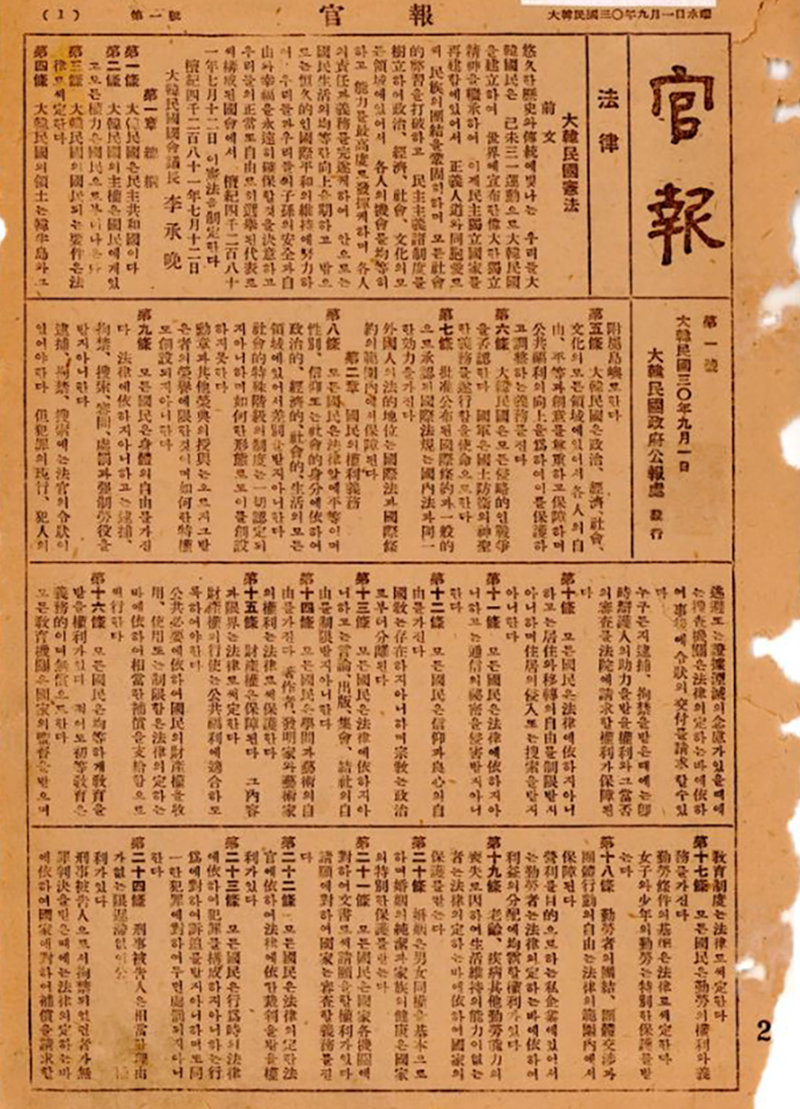 (1) 第一號 官報 大韓民國三〇年九月一日水曜
官報
第一號
大韓民國三〇年九月一日
大韓民國政府公報處 發行
法律
大韓民國憲法
前文
悠久한歷史와傳統에빛나는 우리들大
韓國民은 己未三一運動으로大韓民國
을建立하여 世界에宣布한偉大한獨立
精神을繼承하여 이제民主獨立國家를
再建함에있어서 正義人道와同胞愛로
써 民族의團結을鞏固히하며 모든社會
的弊習을打破하고 民主主義諸制度를
樹立하여政治、經濟、社會、文化의모
든領域에있어서 各人의機會를均等히
하고 能力을最高度로發揮케하며 各人
의責任과義務를完遂케하여 안으로는
國民生活의均等한向上을期하고 밖으
로는恒久的인國際平和의維持에努力하
여 우리들과우리들의子孫의安全과自
由와幸福을永遠히確保할것을決意하고
우리들의正當또自由로히選擧된代表로
써構成된國會에서 檀紀四千二百八十
一年七月十二日 이憲法을制定한다
檀紀四千二百八十一年七月十二日
大韓民國國會議長 李承晩
第一章 總綱
第一條 大韓民國은民主共和國이다
第二條 大韓民國의主權은國民에게있
고모든權力은國民으로부터나온다
第三條 大韓民國의國民되는要件은法
律로써定한다
第四條 大韓民國의領土는韓半島와그
附屬島嶼로한다
第五條 大韓民國은政治、經濟、社會、
文化의모든領域에있어서各人의自
由、平等과創意를尊重하고保障하며
公共福利의向上을爲하여이를保護하
고調整하는義務를진다
第六條 大韓民國은모든侵略的인戰爭
을否認한다 國軍은國土防衛의神聖
한義務를遂行함을使命으로한다
第七條 批准公布된國際條約과一般的
으로承認된國際法規는國內法과同一
한效力을가진다
外國人의法的地位는國際法과國際條
約의範圍內에서保障된다
第二章 國民의權利義務
第八條 모든國民은法律앞에平等이며
性別、信仰또는社會的身分에依하여
政治的、經濟的、社會的、生活의모든
領域에있어서差別을받지아니한다
社會的特殊階級의制度는一切認定되
지아니하며如何한形態로도이를創設
하지못한다
勳章과其他榮典의授與는오로지그받
은者의榮譽에限한것이며如何한特權
도創設되지아니한다
第九條 모든國民은身體의自由를가진
다 法律에依하지아니하고는逮捕、
拘禁、搜索、審問、處罰과强制勞役을
받지아니한다
逮捕、拘禁、搜索에는法官의令狀이
있어야한다 但犯罪의現行、犯人의
逃避또는證據湮滅의念慮가있을때에
는搜査機關은法律의定하는바에依하
여事後에令狀의交付를請求할수있다
누구든지逮捕、拘禁을받은때에는卽
時辯護人의助力을받을權利와그當否
의審査를法院에請求할權利가保障된
다
第十條 모든國民은法律에依하지아니
하고는居住와移轉의自由를制限받지
아니하며住居의侵入또는搜索을받지
아니한다
第十一條 모든國民은法律에依하지아
니하고는通信의祕密을侵害받지아니
한다
第十二條 모든國民은信仰과良心의自
由를가진다
國敎는存在하지아니하며宗敎는政治
로부터分離된다
第十三條 모든國民은法律에依하지아
니하고는言論、出版、集會、結社의自
由를制限받지아니한다
第十四條 모든國民은學問과藝術의自
由를가진다 著作者、發明家와藝術家
의權利는法律로써保護한다
第十五條 財產權은保障된다 그內容
과限界는法律로써定한다
財產權의行使는公共福利에適合하도
록하여야한다
公共必要에依하여國民의財產權을收
用、使用또는制限함은法律의定하는
바에依하여相當한補償을支給함으로
써行한다
第十六條 모든國民은均等하게敎育을
받을權利가있다 적어도初等敎育은
義務的이며無償으로한다
모든敎育機關은國家의監督을받으며
敎育制度는法律로써定한다
第十七條 모든國民은勤勞의權利와義
務를가진다
勤勞條件의基準은法律로써定한다
女子와少年의勤勞는特別한保護를받
는다
第十八條 勤勞者의團結、團體交涉과
團體行動의自由는法律의範圍內에서
保障된다
營利를目的으로하는私企業에있어서
는勤勞者는法律의定하는바에依하여
利益의分配에均霑할權利가있다
第十九條 老齡、疾病其他勤勞能力의
喪失로因하여生活維持의能力이없는
者는法律의定하는바에依하여國家의
保護를받는다
第二十條 婚姻은男女同權을基本으로
하며婚姻의純潔과家族의健康은國家
의特別한保護를받는다
第二十一條 모든國民은國家各機關에
對하여文書로써請願을할權利가있다
請願에對하여國家는審査할義務를진
다
第二十二條 모든國民은法律의定한法
官에依하여法律에依한裁判을받을權
利가있다
第二十三條 모든國民은行爲時의法律
에依하여犯罪를構成하지아니하는行
爲에對하여訴追를받지아니하며또同
一한犯罪에對하여두번處罰되지아니
한다
第二十四條 刑事被告人은相當한理由
가없는限遲滯없이公
利가있다
刑事被告人으로서拘禁되었던者가無
罪判決을받은때에는法律의定하는바
에依하여國家에對하여補償을請求할
2